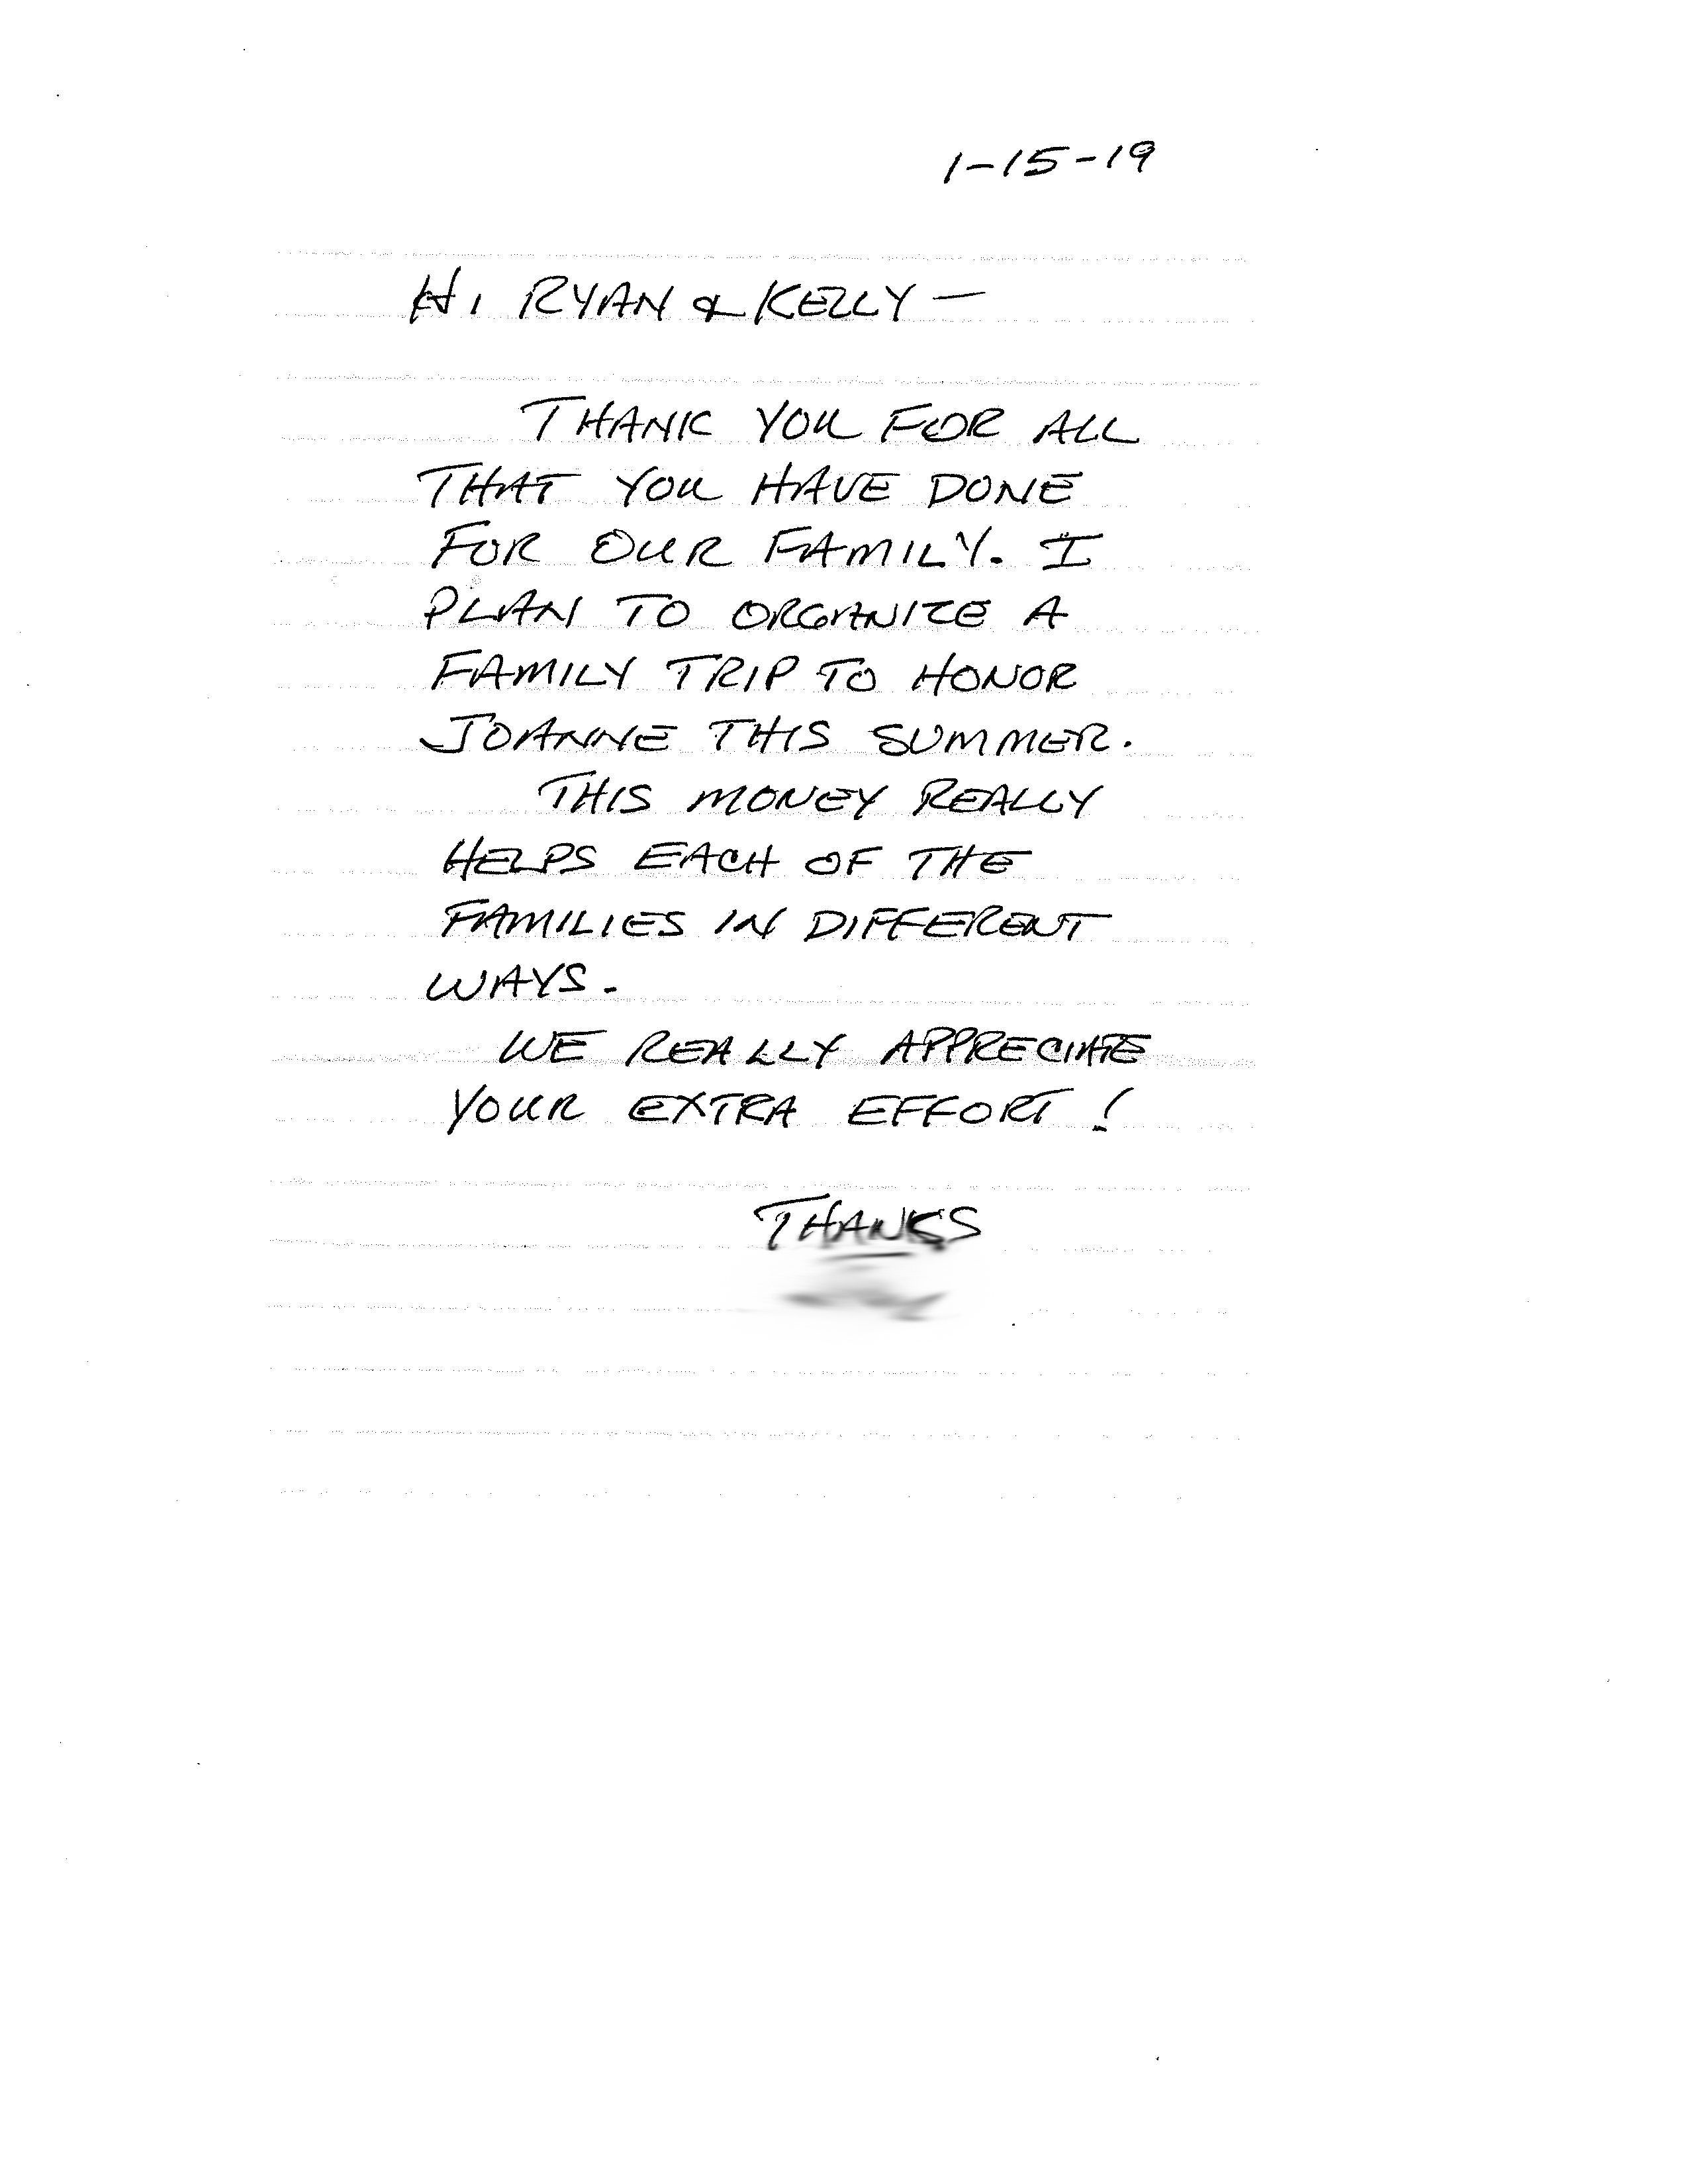 1-15-19
HI RYAN & KELLY —
THANK YOU FOR ALL
THAT YOU HAVE DONE
FOR OUR FAMILY. I
PLAN TO ORGANIZE A
FAMILY TRIP TO HONOR
JOANNE THIS SUMMER.
THIS MONEY REALLY
HELPS EACH OF THE
FAMILIES IN DIFFERENT
WAYS.
WE REALLY APPRECIATE
YOUR EXTRA EFFORT!
THANKS